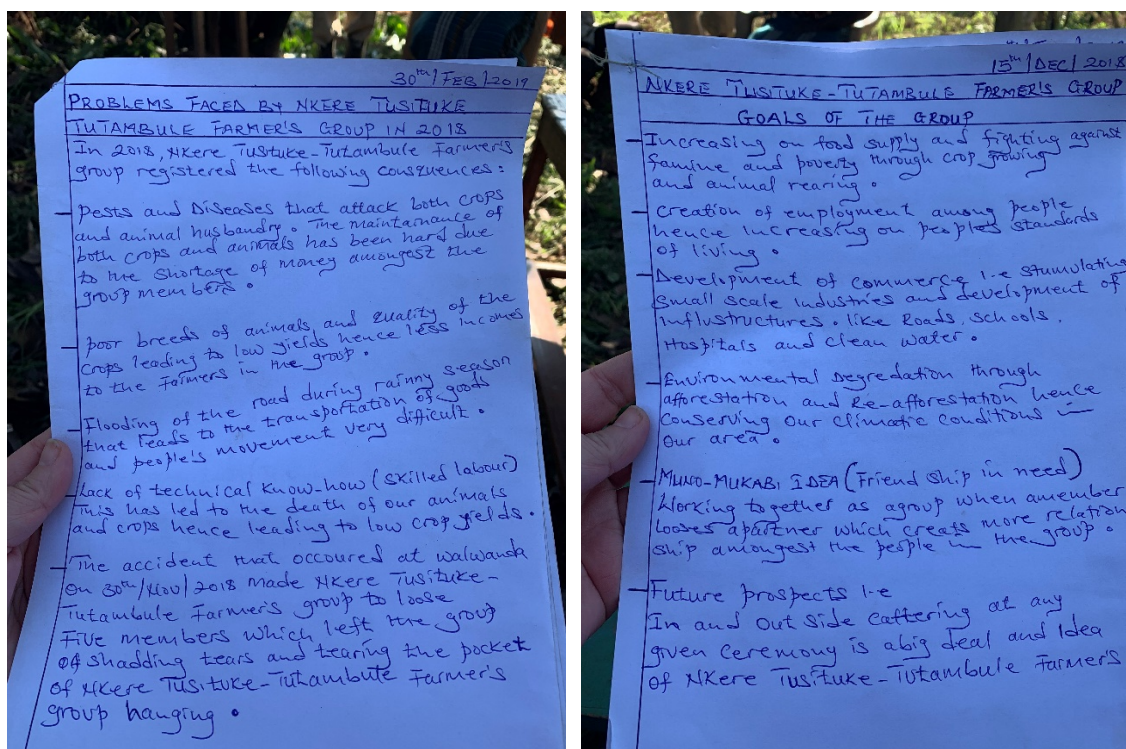 30th/FEB/2019
PROBLEMS FACED BY NKERE TUSITUKE
TUTAMBULE FARMER'S GROUP IN 2018
In 2018, Nkere Tusituke-Tutambule Farmer's
group registered the following consquences:
- Pests and Diseases that attack both crops
and animal husbandry. The maintanance of
both crops and animals has been hard due
to the shortage of money amongest the
group members.
- poor breeds of animals and quality of the
crops leading to low yields hence less incomes
to the Farmers in the group.
- Flooding of the road during rainny season
that leads to the transportation of goods
and people's movement very difficult.
- Lack of technical know-how (skilled labour)
This has led to the death of our animals
and crops hence leading to low crop yields.
- The accident that occoured at walwanda
on 30th/Nov/2018 made Nkere Tusituke-
Tutambule Farmer's group to loose
Five members which left the group
of shadding tears and tearing the pocket
of Nkere Tusituke-Tutambule Farmer's
group hanging.
15th/DEC/2018
NKERE TUSITUKE-TUTAMBULE FARMER'S GROUP
GOALS OF THE GROUP
- Increasing on food supply and frighting against
famine and poverty through crop growing
and animal rearing.
- Creation of employment among people
hence increasing on people's standards
of living.
- Development of commerce i.e stumulating
small scale industries and development of
influstructures. like Roads, schools,
Hospitals and clean water.
- Environmental Degredation through
afforestration and Re-afforestation hence
conserving our climatic conditions in
our area.
- MUNO-MUKABI IDEA (Friend ship in need)
Working together as agroup when amember
looses apartner which creats more relation
ship amongest the people in the group.
- Future prospects i-e
In and out side cattering at any
given ceremony is abig deal and Idea
of Nkere Tusituke-Tutambule Farmer's